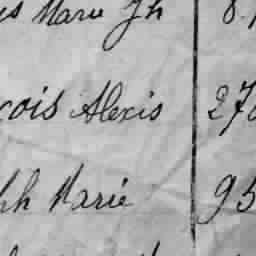 us Marie Jh 8.
çois Alexis 276
ph Marie 95